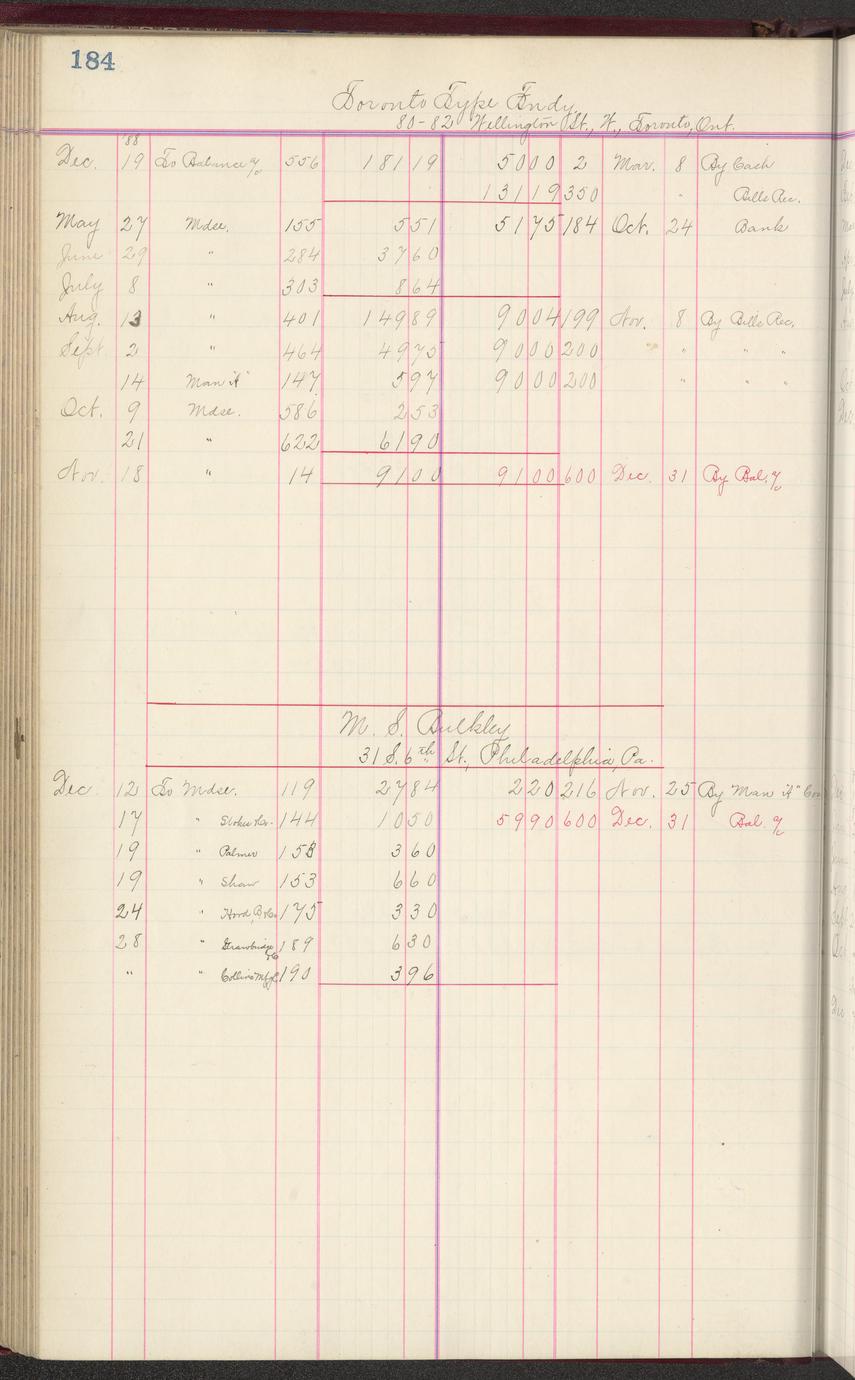 184
Toronto Type Fndy
80-82 Wellington St., W., Toronto, Ont.
'88
Dec. 19 To Balance 556 181 19 50 00 2 Mar. 8 By Cash
131 19 350 " Bills Rec.
May 27 Mdse. 155 5 51 51 75 184 Oct. 24 Bank
June 29 " 284 37 60
July 8 " 303 8 64
Aug. 13 " 401 149 89 90 04 199 Nov. 8 By Bills Rec.
Sept 2 " 464 49 75 90 00 200 " " "
14 Man "A" 147 5 97 90 00 200 " " "
Oct. 9 Mdse. 586 2 53
21 " 622 61 90
Nov. 18 " 14 91 00 91 00 600 Dec. 31 By Bal.
M. S. Bulkley
31 S. 6th St., Philadelphia, Pa.
Dec 12 To Mdse. 119 27 84 2 20 216 Nov. 25 By Man "A"
17 " 144 10 50 59 90 600 Dec. 31 Bal.
19 " Palmer 153 3 60
19 " Shaw 153 6 60
24 " 175 3 30
28 " Strawbridge 189 6 30
" " Collins Mfg 190 3 96